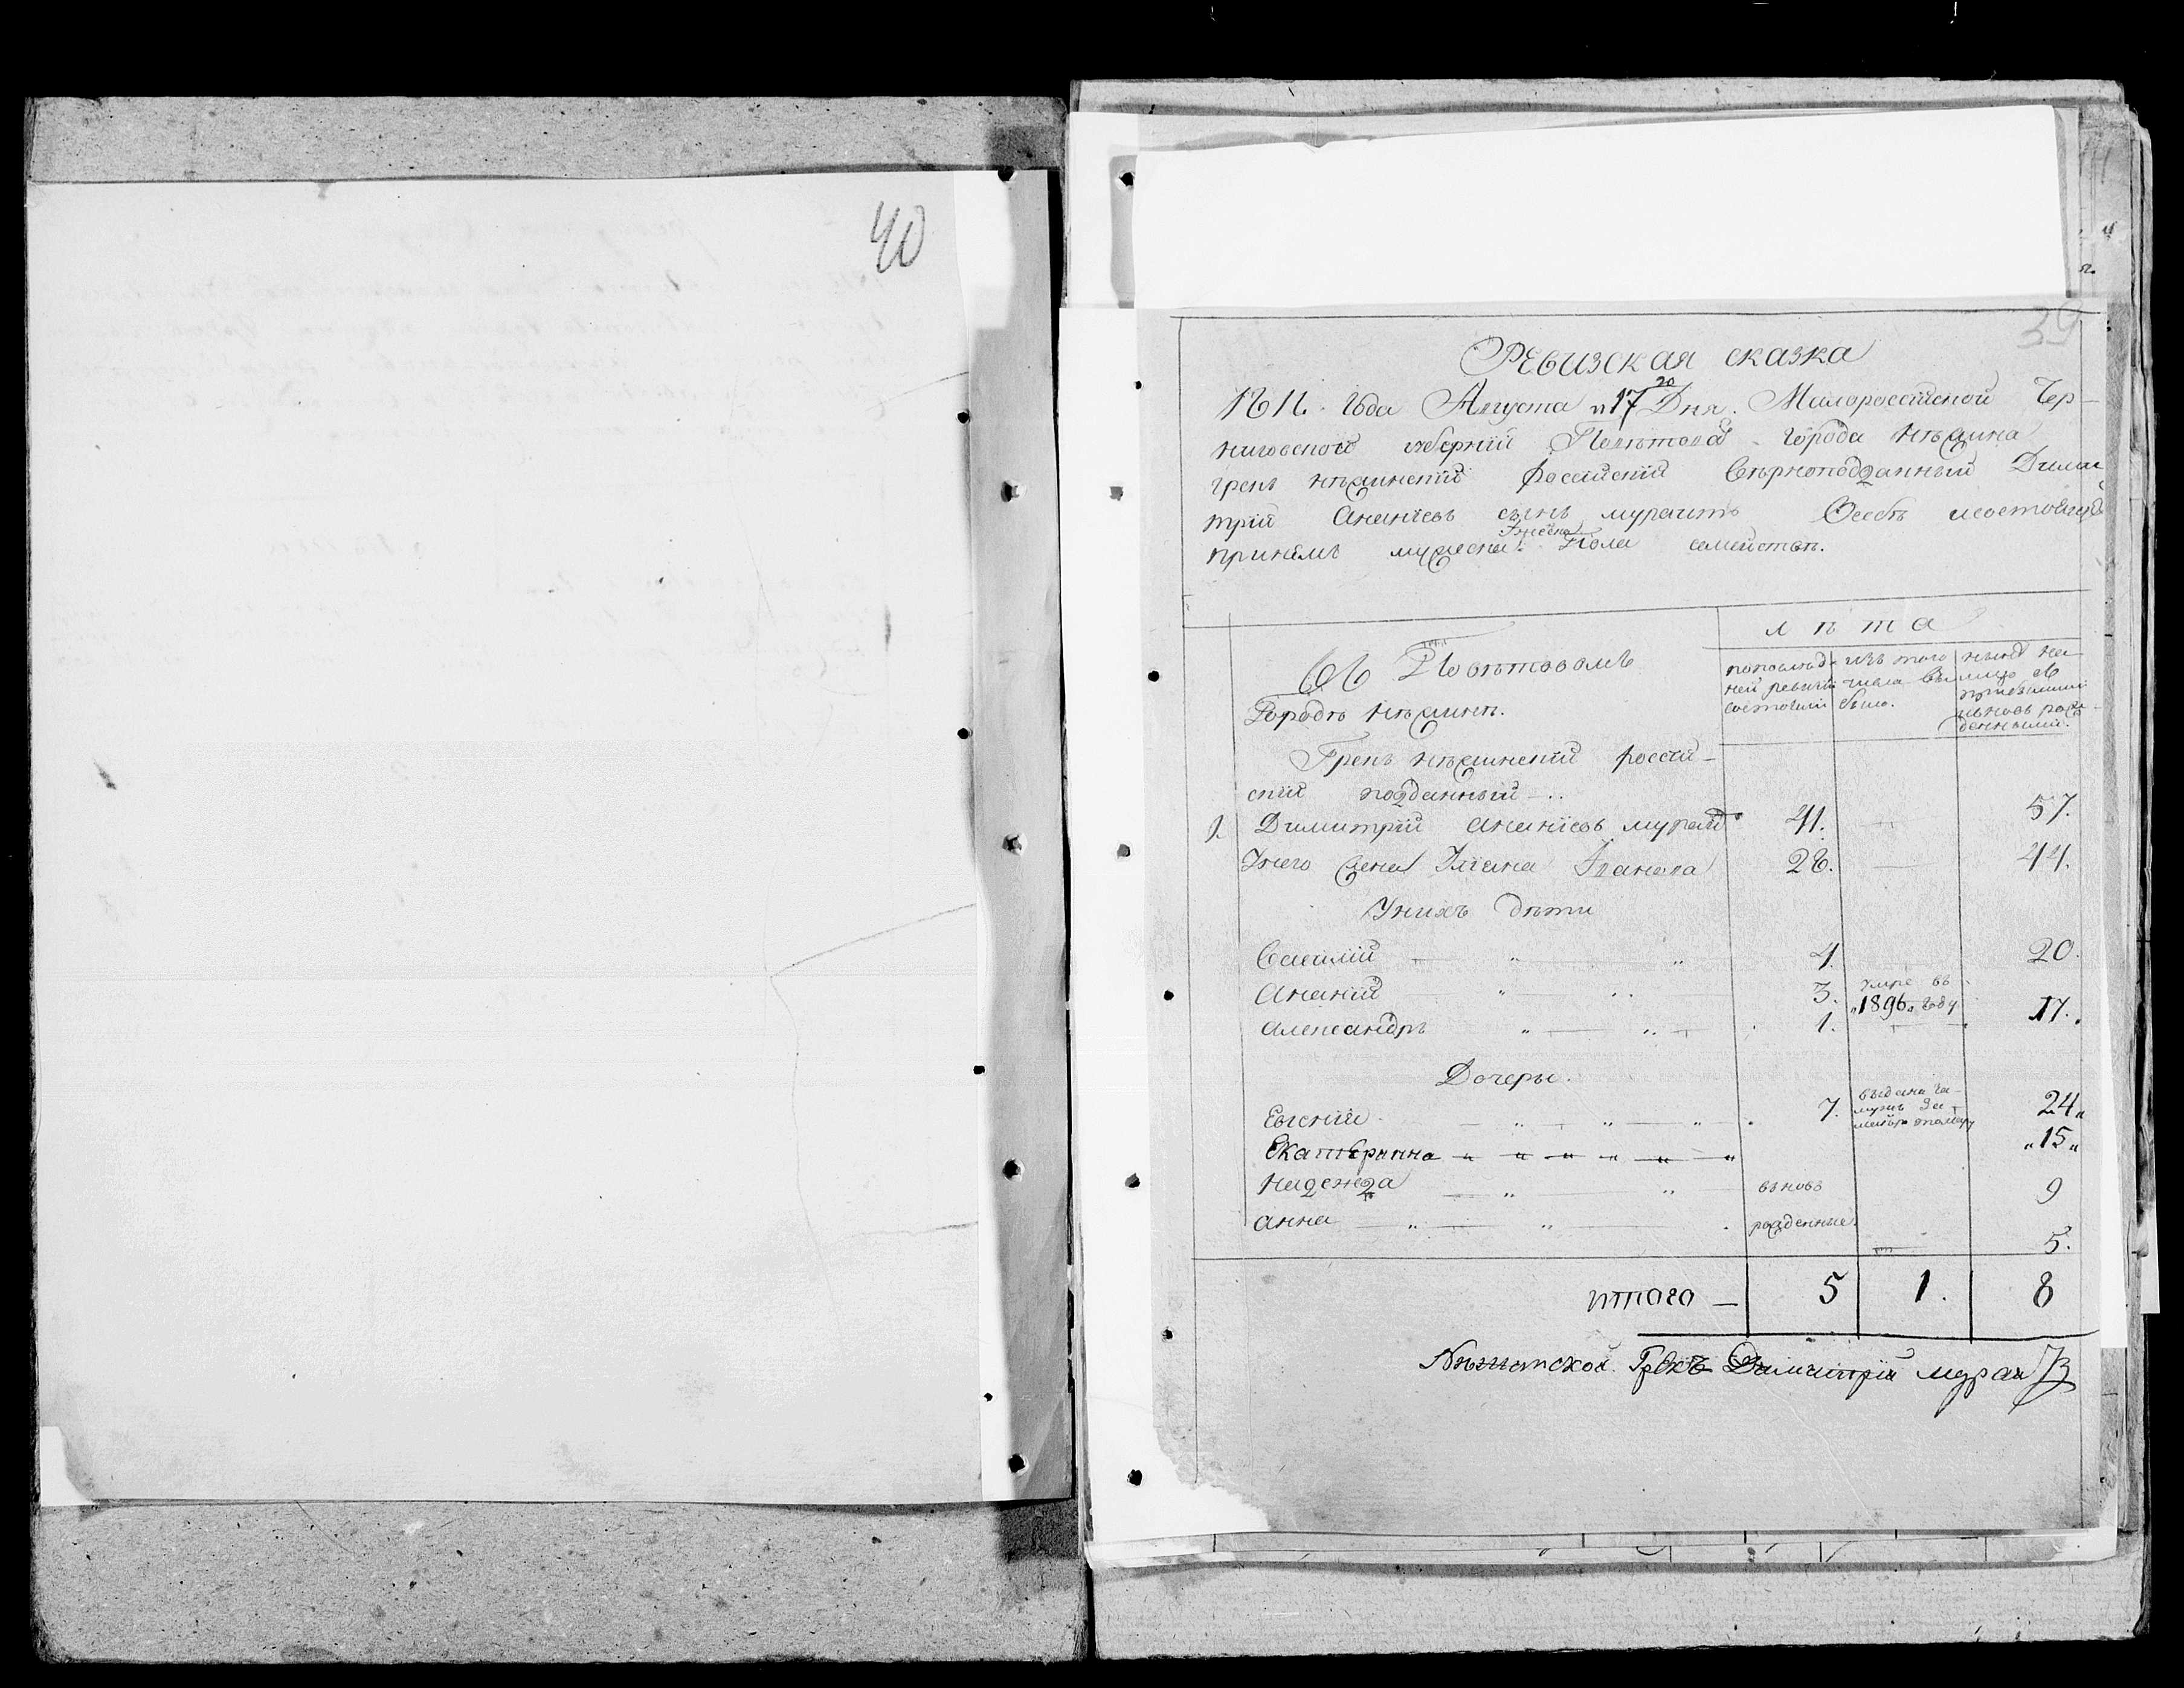 40
39
Ревизская сказка
1811 года Августа 17 20 Дня. Малороссійской Чер-
ниговской губерніи Повѣтового города нѣжина
грекъ нѣжинскій россійскій вѣрноподданный Дими
трій Ананіевъ сынъ мурашъ о себѣ и состоящей
при нѣмъ мужеска. и женска пола семействѣ.
лѣта
Въ Повѣтовомъ
Городѣ нѣжинѣ.
по послѣд-
ней ревизіи
состояли
изъ того
числа вы
было.
нынѣ на
лицо съ
прибылыми
и вновь рож
денными.
Грекъ нѣжинскій россій-
скій подданный
1. Димитрій ананіевъ мурашъ 41. — 57.
У него жена Уліана Иванова 28. — 44.
У нихъ дѣти
Василій — „ — „ 4. 20.
Ананій — „ — 3. умре въ „1896„ году
Александръ „ — „ 1. — 17.
Дочеры.
Евгенія — „ — „ — „ 7. выдана за-
мужъ за 24„
Екатерина „ „ „ „ „ „ „15„
Надежда — „ — „ вновь 9
анна — „ — „ рожденные 5.
итого — 5 1. 8
Нѣжинской Грекъ Димитрій мураи